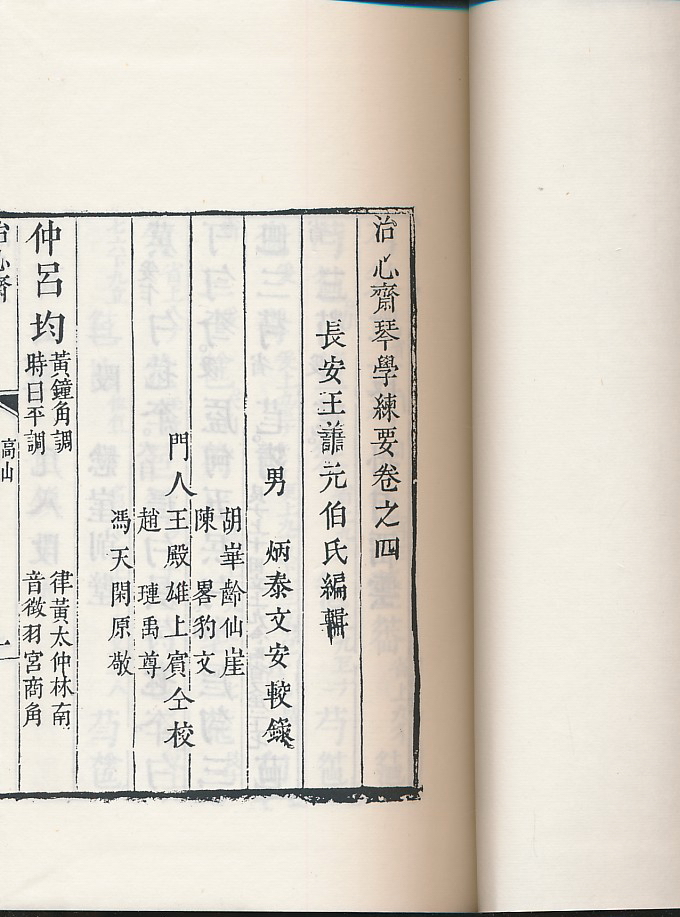 治心齋琴學練要卷之四
長安王譱元伯氏編輯
男 炳泰文安較錄
胡崋齡仙崖
陳畧豹文
門人王殿雄上賓仝校
趙璉禹尊
馮天閑原敬
仲呂均
黃鐘角調
時曰平調
律黃太仲林南
音徵羽宮商角
治心齋
高山